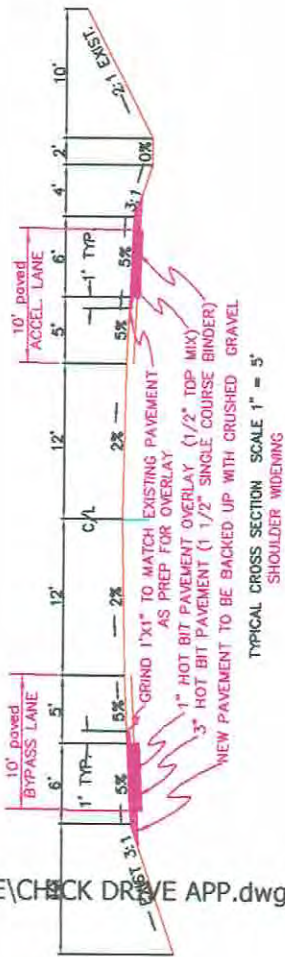 10' paved
BYPASS LANE
10' paved
ACCEL. LANE
6'
5'
12'
12'
5'
6'
4'
2'
10'
C/L
1' TYP.
1' TYP.
5%
5%
2%
2%
5%
5%
3:1
0%
2:1 EXIST.
3:1
GRIND 1'X1" TO MATCH EXISTING PAVEMENT
AS PREP FOR OVERLAY
1" HOT BIT PAVEMENT OVERLAY (1/2" TOP MIX)
3" HOT BIT PAVEMENT (1 1/2" SINGLE COURSE BINDER)
NEW PAVEMENT TO BE BACKED UP WITH CRUSHED GRAVEL
TYPICAL CROSS SECTION SCALE 1" = 5'
SHOULDER WIDENING
E\CHICK DRIVE APP.dwg